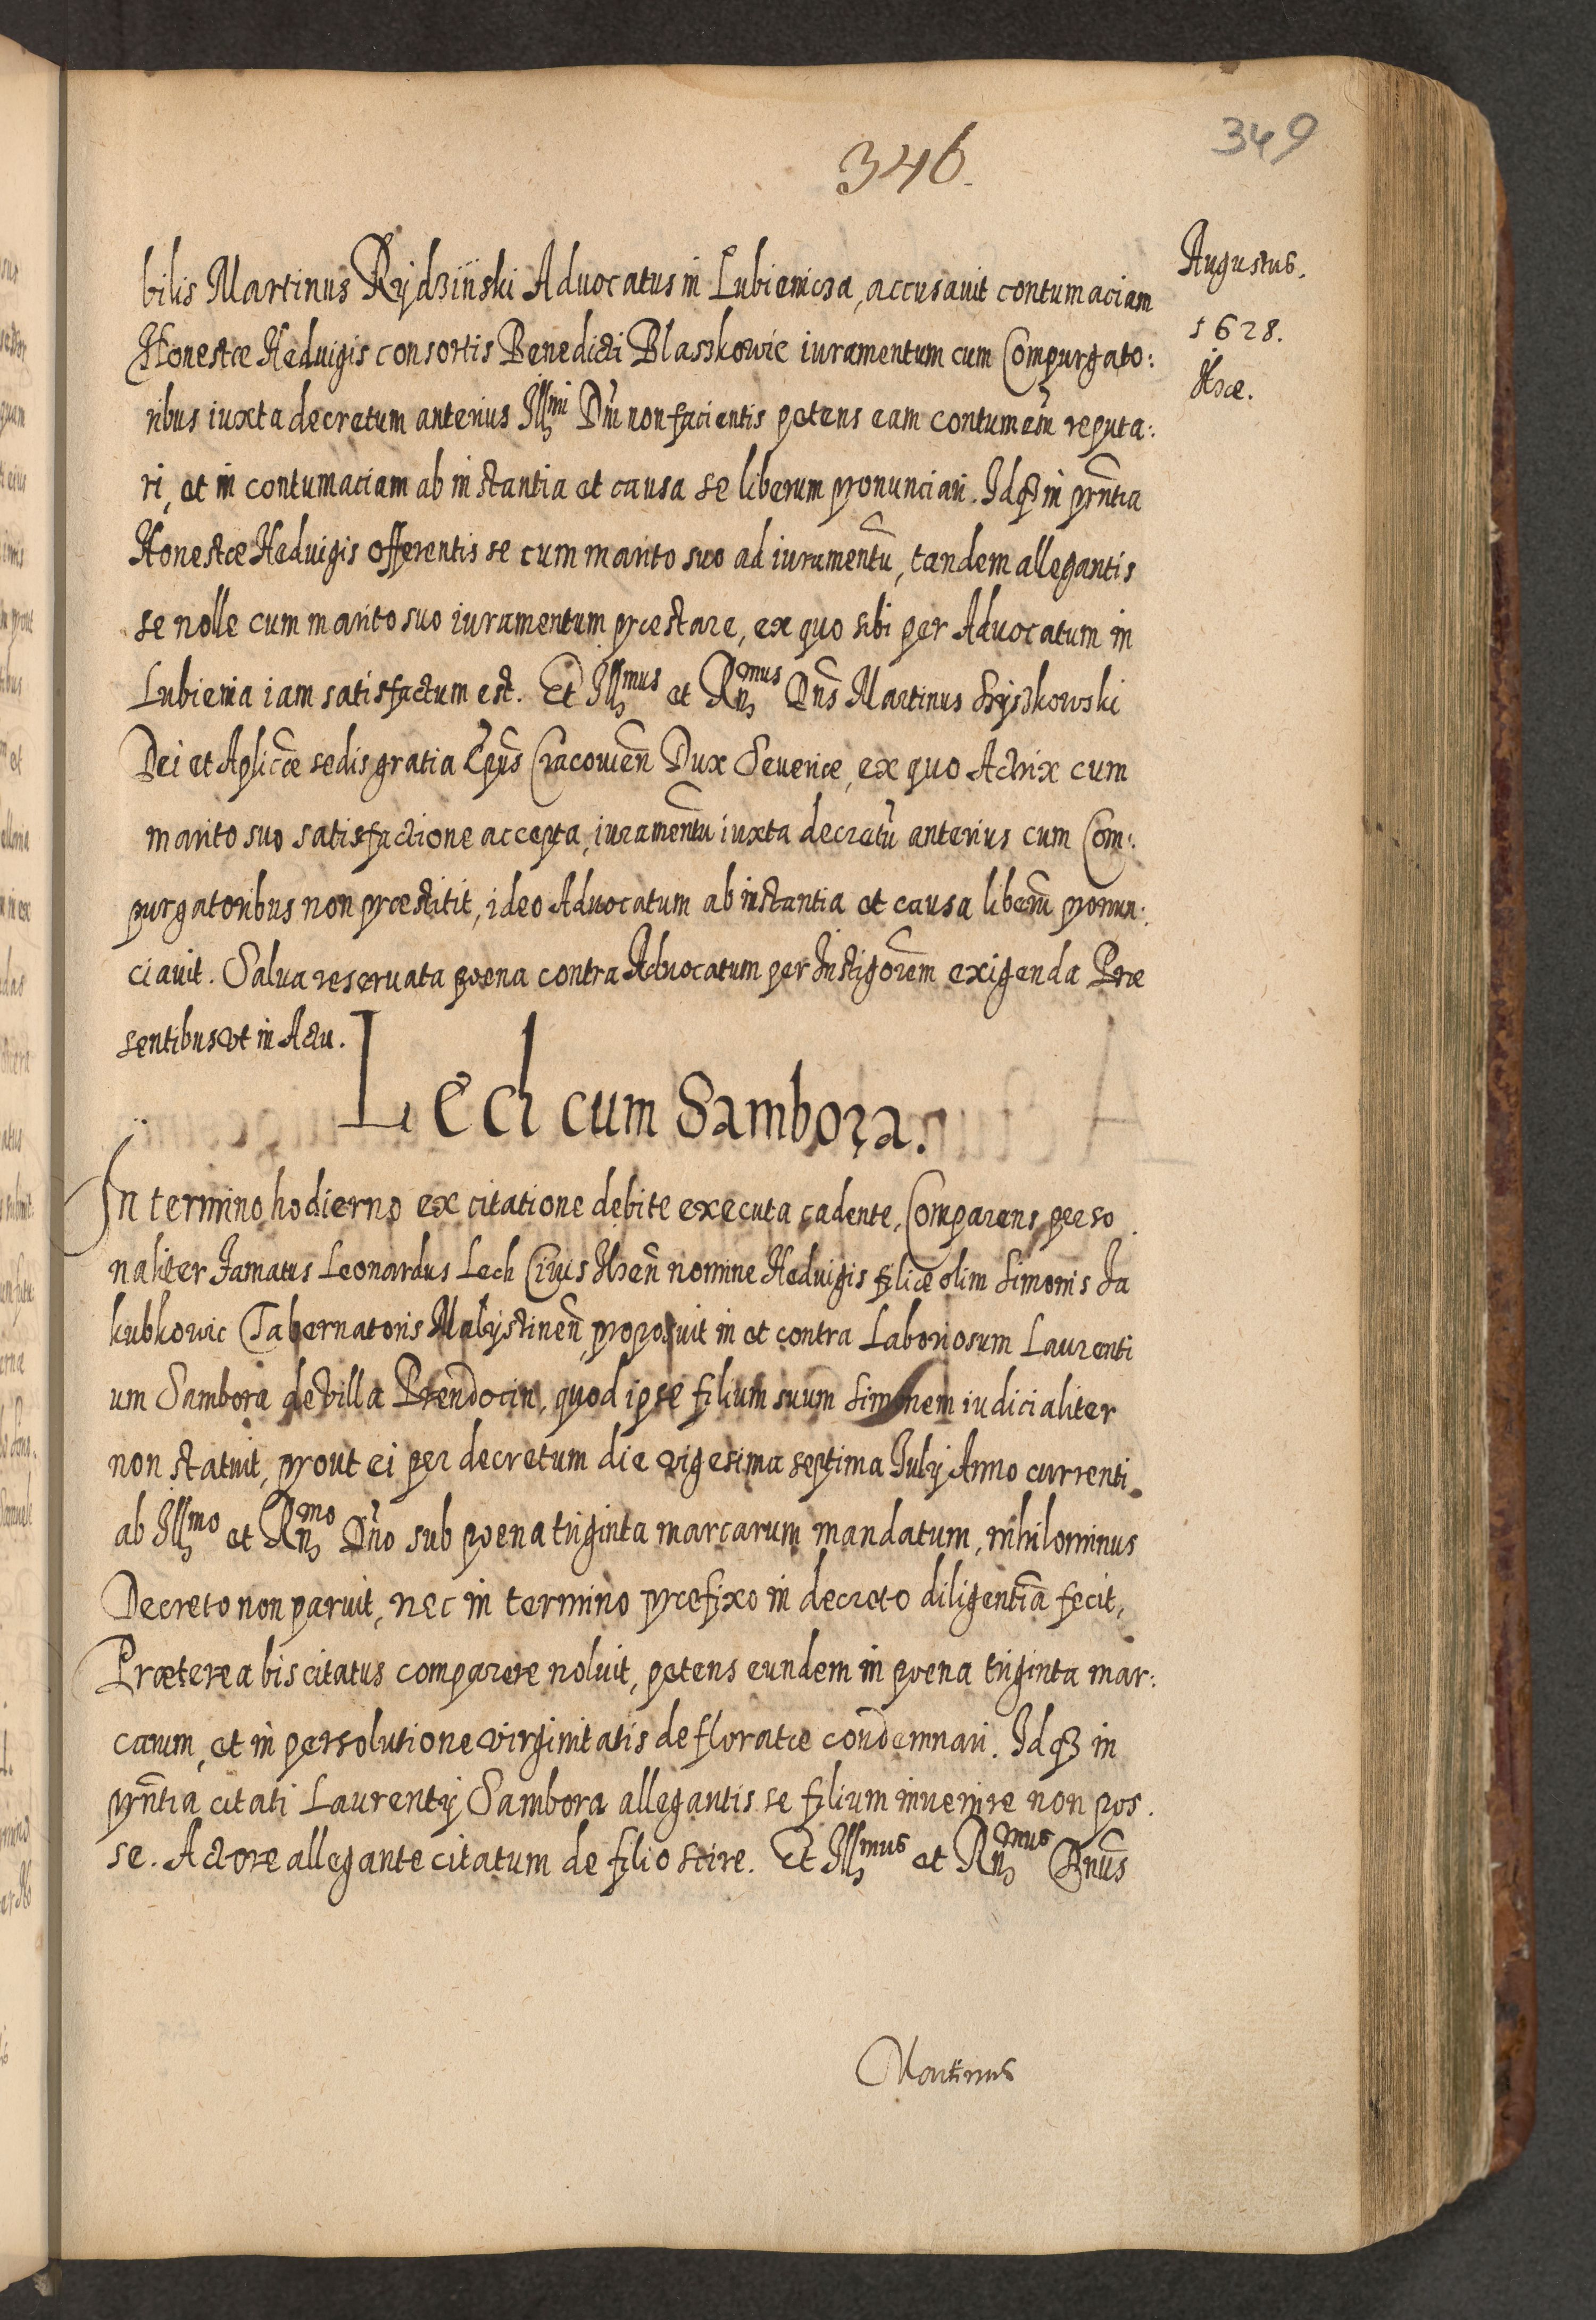 349
346.
Augustus.
1628.
Ilzæ.
bilis Martinus Rydziński Advocatus in Lubienicza, accusavit contumaciam
Honestæ Heduigis consortis Benedicti Blaszkowic iuramentum cum Compurgato:
ribus iuxta decretum anterius Illmi Dni non facientis petens eam contumem reputa:
ri, et in contumaciam ab instantia et causa se liberum pronunciari. Idq3 in pñtia
Honestæ Heduigis offerentis se cum marito suo ad iuramentũ, tandem allegantis
se nolle cum marito suo iuramentum præstare, ex quo sibi per Advocatum in
Lubienia iam satisfactum est. Et Illmus et Rnmus Dñs Martinus Szyszkowski
Dei et Aplicæ sedis gratia Epũs Cracouieñ Dux Seueriæ, ex quo Actrix cum
marito suo satisfactione accepta, iuramentũ iuxta decretũ anterius cum Com:
purgatoribus non præstitit, ideo Advocatum ab instantia et causa liberũ pronun:
ciauit. Salua reseruata poena contra Advocatum per Instigorem exigenda Præ
sentibus vt in Actu.
Lech cum Sambora.
In termino hodierno ex citatione debite executa cadente, Comparens perso
naliter Famatus Leonardus Lech Ciuis Ilzeñ nomine Heduigis filiæ olim Simonis Ja
kubkowic Tabernatoris Malystineñ, proposuit in et contra Laboriosum Laurenti
um Sambora de villa Prendocin, quod ipse filium suum Simonem iudicialiter
non statuit, prout ei per decretum die vigesima septima July Anno currenti
ab Illmo et Rnmo Dño sub poena triginta marcarum mandatum, nihilominus
Decreto non paruit, nec in termino præfixo in decreto diligentiã fecit,
Præterea bis citatus comparere noluit, petens eundem in poena triginta mar:
carum, et in persolutione virginitatis defloratæ condemnari. Idq3 in
pñtia citati Laurenty Sambora allegantis se filium invenire non pos.
se. Actore allegante citatum de filio scire. Et Illmus et Rnmus Dnũs
Martinus